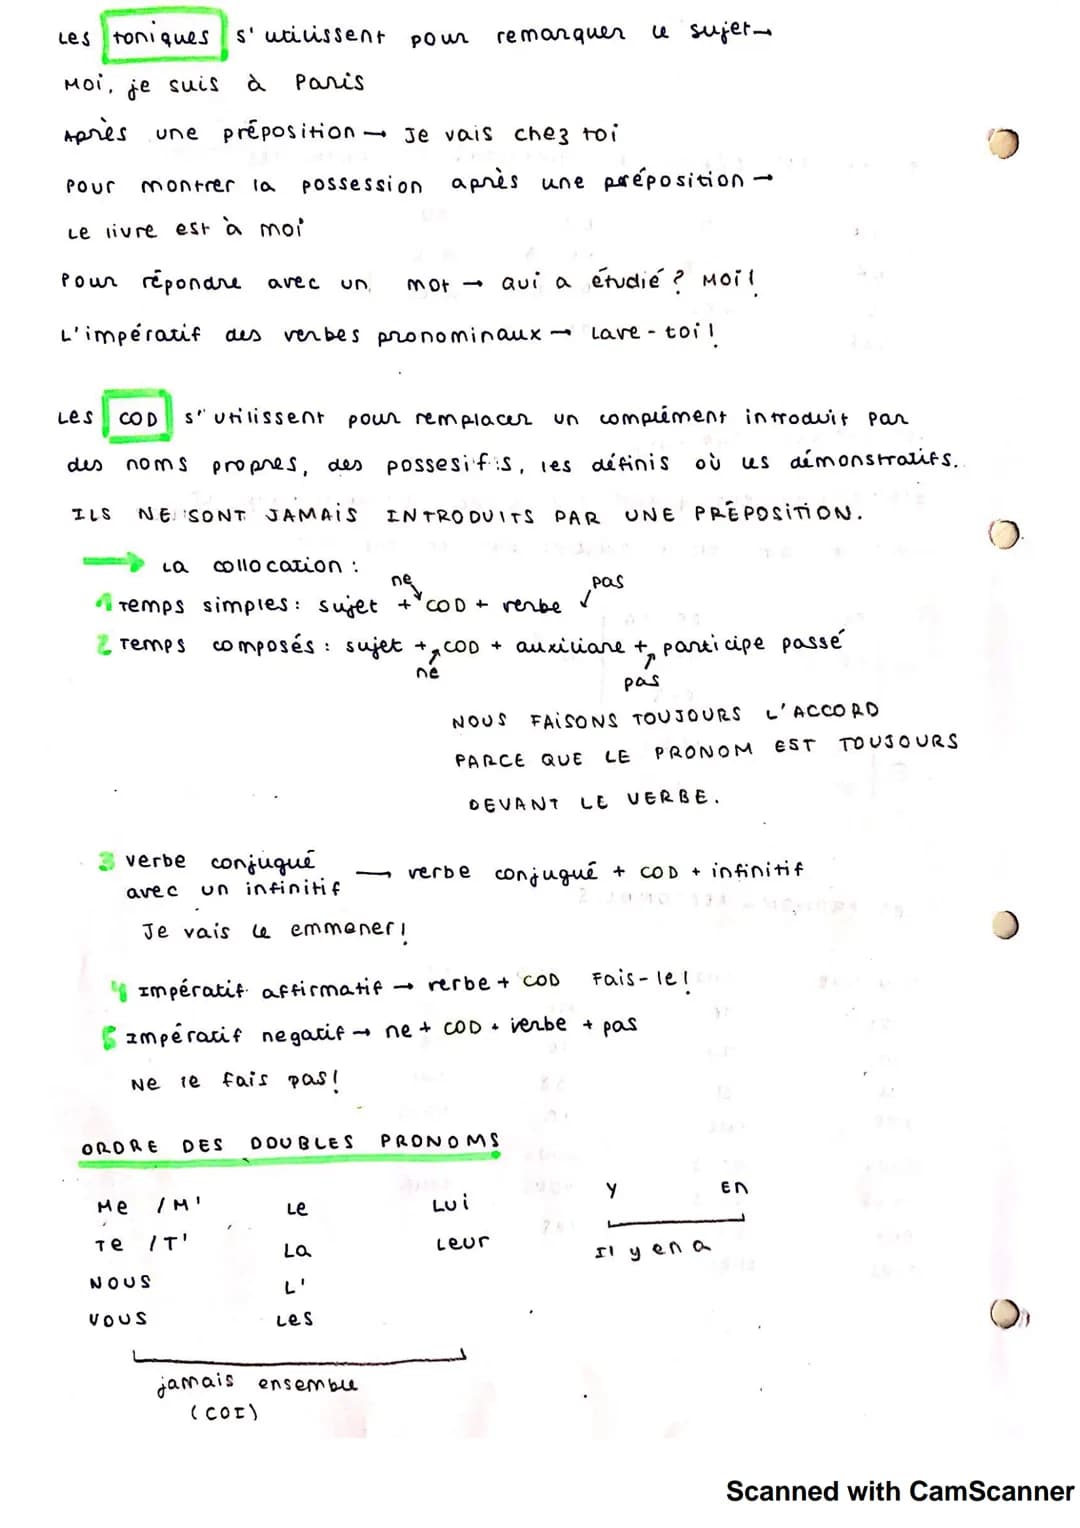 Les toniques s'utilissent pour remarquer le sujet→
Moi, je suis à Paris
Après une préposition → Je vais chez toi
Pour montrer la possession après une préposition →
Le livre est à moi
Pour répondre avec un mot → Qui a étudié? Moi!
L'impératif des verbes pronominaux → Lave-toi!
Les COD s'utilissent pour remplacer un complément introduit par
des noms propres, des possesifis, les définis où les démonstratifs.
ILS NE SONT JAMAIS INTRODUITS PAR UNE PRÉPOSITION.
→ La collocation:
ne pas
1 Temps simples: sujet + COD + verbe
2 Temps composés: sujet + COD + auxiliare + participe passé
ne pas
NOUS FAISONS TOUJOURS L'ACCORD
PARCE QUE LE PRONOM EST TOUJOURS
DEVANT LE VERBE.
3 verbe conjugué
avec un infinitif → verbe conjugué + COD + infinitif
Je vais le emmener!
4 Impératif affirmatif → verbe + COD Fais-le!
5 Impératif negatif → ne + COD + verbe + pas
Ne le fais pas!
ORDRE DES DOUBLES PRONOMS
Me /M' Le Lui Y EN
Te /T' La Leur Il y en a
NOUS L'
VOUS Les
jamais ensemble
(COI)
Scanned with CamScanner